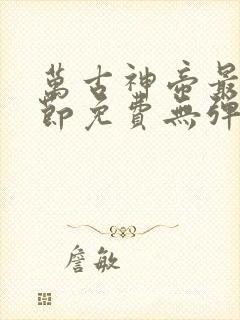 萬古神帝最
節免費無彈
詹敏